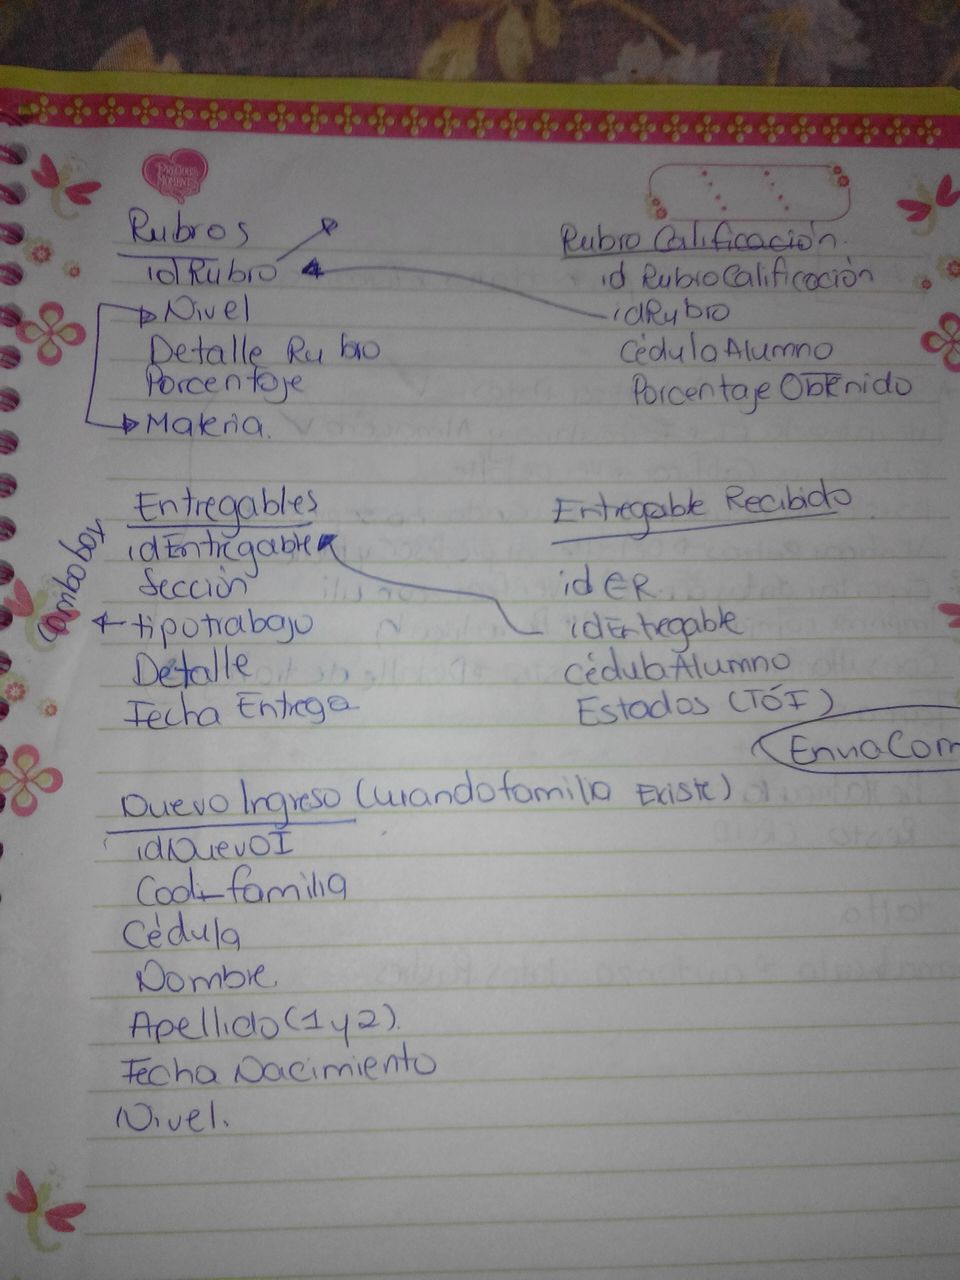 PRECIOUS MOMENTS
Rubros
idRubro
Nivel
Detalle Rubro
Porcentaje
Materia.
Rubro Calificación.
id RubroCalificación
idRubro
CédulaAlumno
Porcentaje Obtenido
Entregables
idEntregable
Sección
tipotrabajo
Detalle
Fecha Entrega
Combobox
Entregable Recibido
idER
idEntregable
cédulaAlumno
Estados (TÓF)
Nuevo Ingreso (Cuando familia Existe)
idNuevoI
Cod_familia
Cédula
Nombre
Apellido (1 y 2).
Fecha Nacimiento
Nivel.